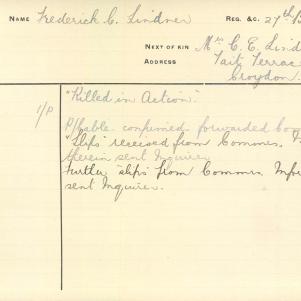 NAME Frederick C. Lindner REG. &C. 27th/
NEXT OF KIN Mrs C. E. Lind
ADDRESS Taitz Terrac
Croydon.
"Killed in Action".
1/P P/Cable confirmed forwarded Co
"Slips" received from Commrs.
therein sent Inquirer
Further "slips" from Commrs. Infor
sent Inquirer.